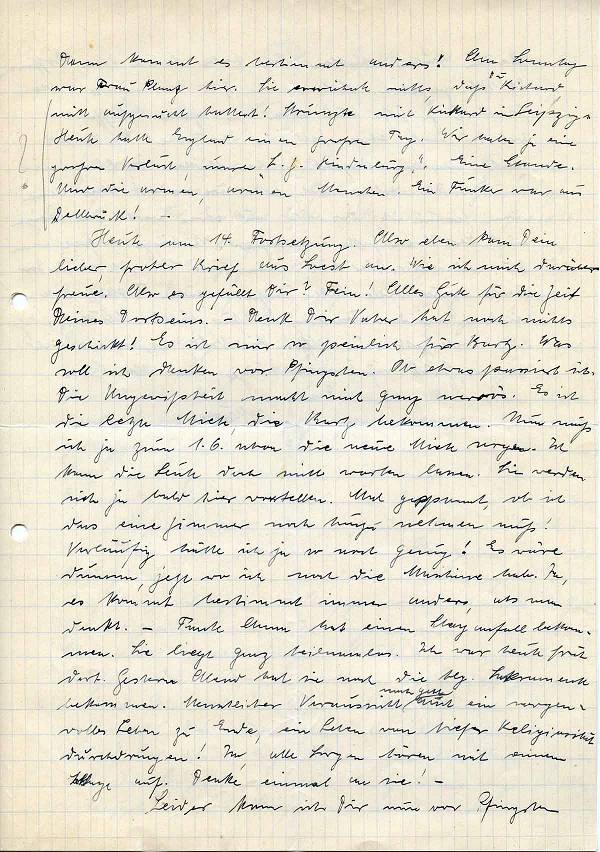 Dann kommt es bestimmt anders! Am Sonntag
war Frau Plump hier. Sie nichts, daß Richard
mit hattest! mit Richard in Leipzig.
Heute hatte England einen großen Tag. Wir haben ja eine
großen Verlust, unser L. Z. Hindenburg". Eine Stunde.
Und die armen, armen Menschen. Ein Funker war aus
Dellbrück! —
Heute um 14. Fortsetzung. Also eben kam Dein
lieber, froher Brief aus Soest an. Wie ich mich darüber
freue. Also es gefällt Dir? Fein! Alles Gute für die Zeit
Deines Dortseins. — Denk Dir Vater hat noch nichts
geschickt! Es ist mir so peinlich für Kurtz. Was
soll ich denken vor Pfingsten. Ob etwas passiert ist.
Die Ungewißheit macht mich ganz nervös. Es ist
die letzte Miete, die Kurtz bekommen. Nun muß
ich ja zum 1.6. schon die neue Miete sorgen. Ich
kann die Leute doch nicht warten lassen. Sie werden
sich ja bald hier vorstellen. Mal gespannt, ob ich
das eine Zimmer noch nehmen muß!
Vorläufig hätte ich ja so noch genug! Es wäre
dumm, jetzt wo ich noch die Maschine habe. Ja,
es kommt bestimmt immer anders, als man
denkt. — Tante Anna hat einen Schlaganfall bekom-
men. Sie liegt ganz teilnamlos. Ich war heute früh
dort. Gestern Abend hat sie noch die hlg. Sakramente
bekommen. Menschlicher Voraussicht nach geht ein sorgen-
volles Leben zu Ende, ein Leben von tiefer Religiosität
durchdrungen! Ja, alle Sorgen hören mit einem
auf. Denke einmal an sie! —
Leider kann ich Dir nun vor Pfingsten